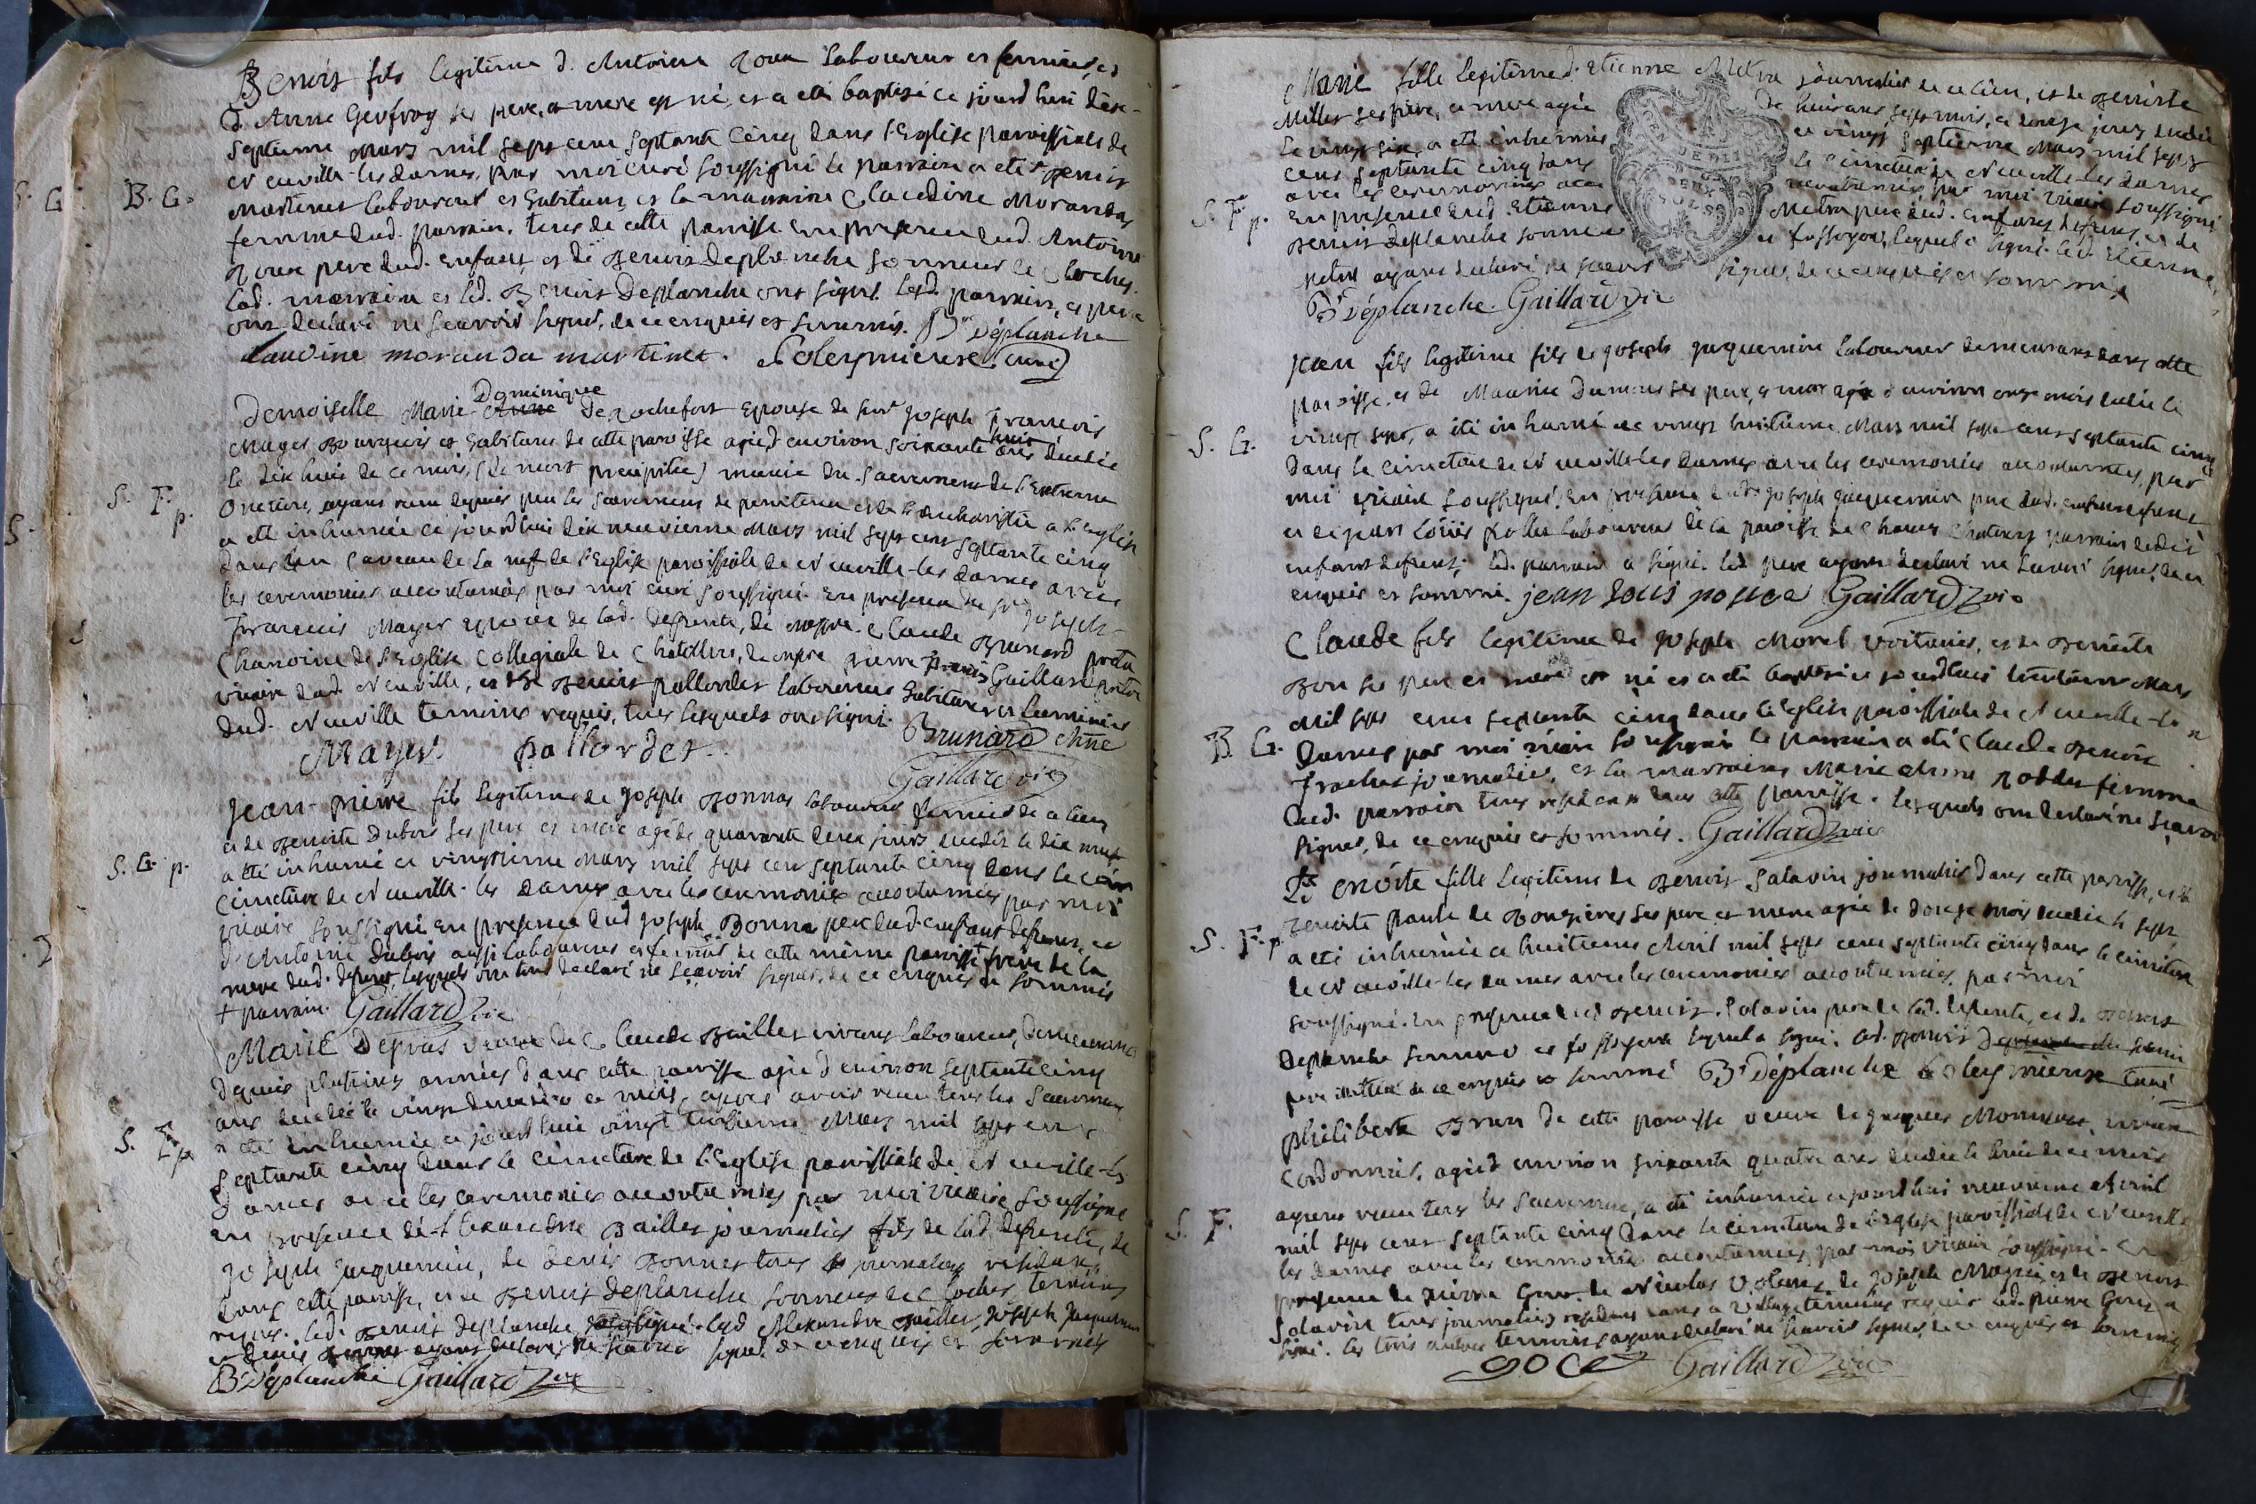 Benoit fils legitime d. Antoine Roux laboureur et fermier, et
d. Anne Geofroy ses pere, et mere est né, et a eté baptisé ce jourdhui dixe-
septieme Mars mil sept cent septante cinq dans l'Eglise paroissiale de
Neuville-les dames, par moi curé soussigné le parrain a eté Benoit
Martinet laboureur et habitant, et la marraine Claudine Morandas
femme dud. parrain, tous de cette paroisse En presence dud. Antoine
Roux pere dud. enfant, et de Benoit Deplanche sonneur de cloches.
Lad. marraine et led. Benoit Deplanche ont signé. Led. parrain, et pere
ont declaré ne scavoir signer, de ce enquis et sommés. Bt Déplanche
laudine moranda martinet. curé
B. G.
Demoiselle Marie Dominique de Rochefort Epouse de Sieur Joseph François
Mayer Bourgeois et habitant de cette paroisse agée d environ soixante huit ans decedée
le dix huit de ce mois, (de mort precipitée) munie du Sacrement de l'Extreme
Onction, ayant recu depuis peu les sacremens de penitence et de l'Eucharistie a l'Eglise
a eté inhumée ce jourdhui dix neuvieme Mars mil sept cent septante cinq
S. F. p.
dans un caveau de La nef de l'Eglise paroissiale de Neuville-les dames avec
les ceremonies accoutumées par moi curé soussigné. En presence du Sr Joseph-
François Mayer epoux de lad. defunte, de Messire Claude Brunard pretre
Chanoine de l'Eglise Collegiale de Chatillon, de Messire pierre Gaillard pretre
vicaire dud. Neuville, et de Benoit pallordet laboureur habitant et luminier
dud. Neuville temoins requis, tous lesquels ont signé. Brunard chne
Mayer. pallordet. Gaillard vic
Jean-pierre fils legitime de Joseph Bonnas laboureur fermier de ce lieu
et de Benoite Dubois ses pere et mere agé de quarante deux jours decedé le dix neuf
a eté inhumé ce vingtieme Mars mil sept cent septante cinq dans le
S. G. p.
Cimetiere de Neuville-les dames avec les ceremonies accoutumées par moi
vicaire soussigné En presence dud Joseph Bonna pere dud. enfant defunt, et
d'Antoine Dubois aussi laboureur et fermier de cette même paroisse frere de la
mere dud. defunt, lesquels ont tous declaré ne scavoir signer, de ce enquis et sommés
+ parrain. Gaillard vic
Marie Depras veuve de Claude Baillet vivant laboureur, demeurant
depuis plusieurs années dans cette paroisse agée d environ septante cinq
ans decedée le vingt deux de ce mois, apres avoir recu tous les Sacremens
a eté inhumée ce jourdhui vingt troisieme Mars mil sept cent
S. F. p.
septante cinq dans le cimetiere de l'Eglise paroissiale de Neuville-les
dames avec les ceremonies accoutumées par moi vicaire soussigné
en presence de Alexandre Baillet journalier fils de lad. defunte, de
Joseph Jacquemin, de Denis Bonnet tous journaliers residans
dans cette paroisse, et de Benoit Deplanche sonneur de cloches, temoins
requis. Led. Benoit Deplanche a signé. Lesd Alexandre Baillet, Joseph Jacquemin
et Denis Bonnet ayant declaré ne scavoir signer de ce enquis et sommés
Bt Déplanche Gaillard vic
Marie fille legitime d. Etienne Metra journalier de ce lieu, et de Benoite
Millet ses pere, et mere agée de huit ans, sept mois, et douze jours decedée
le vingt six, a eté inhumée ce vingt septieme Mars mil sept
cent septante cinq dans le cimetiere de Neuville-les dames
avec les ceremonies accoutumées par moi vicaire soussigné
S. F. p.
En presence dud. Etienne Metra pere dud. enfant defunt, et de
Benoit Deplanche sonneur et fossoyeur, lequel a signé. Led. Etienne
Metra ayant declaré ne scavoir signer, de ce enquis et sommé.
Bt Déplanche. Gaillard vic
Jean fils legitime fils de Joseph Jacquemin laboureur demeurant dans cette
paroisse, et de Maurice Dumont ses pere, et mere agé d environ onze mois decedé le
vingt sept, a eté inhumé ce vingt huitieme Mars mil sept cent septante cinq
S. G.
dans le cimetiere de Neuville-les dames avec les ceremonies accoutumées, par
moi vicaire soussigné. En presence dudt Joseph Jacquemin pere dud. enfant defunt
et de jean Loüis laboureur de la paroisse de parrain dudit
enfant defunt; led. parrain a signé. led. pere ayant declaré ne scavoir signer, de ce
enquis et sommé. jean Gaillard vic
Claude fils legitime de Joseph Morel voiturier, et de Benoite
Bon ses pere et mere est né et a eté baptisé ce jourdhui trentieme Mars
mil sept cent septante cinq dans l'Eglise paroissiale de Neuville-les
B. G.
dames par moi vicaire soussigné le parrain a eté Claude Benoit
journalier, et la marraine Marie femme
dud. parrain tous residans dans cette paroisse. Lesquels ont declaré ne scavoir
signer, de ce enquis et sommés. Gaillard vic
Benoite fille legitime de Benoit Salavin journalier dans cette paroisse, et de
Benoite ses pere et mere agée de douze mois decedée le sept
S. F. p.
a eté inhumée ce huitieme Avril mil sept cent septante cinq dans le cimetiere
de Neuville-les dames avec les ceremonies accoutumées, par moi
soussigné. En presence dud Benoit Salavin pere de lad. defunte, et de Benoit
Deplanche sonneur et fossoyeur lequel a signé. led. Benoit
pere de ce enquis et sommé Bt Déplanche curé
philiberte Brun de cette paroisse veuve de Jacques Monneret, vivant
Cordonnier, agée d environ soixante quatre ans decedée le huit de ce mois
apres avoir recu tous les sacremens, a eté inhumée ce jourdhui neuvieme Avril
S. F.
mil sept cent septante cinq dans le cimetiere de l'Eglise paroissiale de Neuville
les dames avec les ceremonies accoutumées, par moi vicaire soussigné. En
presence de pierre Goce, de Nicolas, de Joseph, et de Benoit
Salavin tous journaliers residans dans ce village temoins requis led. pierre Goce a
signé. Les trois autres temoins ayant declaré ne scavoir signer, de ce enquis et sommés
goce Gaillard vic